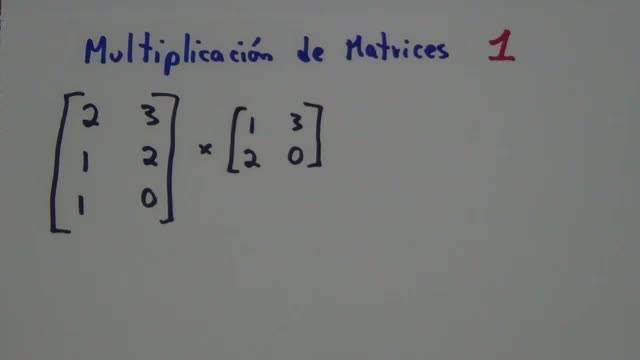 Multiplicación de Matrices 1
2 3
1 2
1 0
×
1 3
2 0